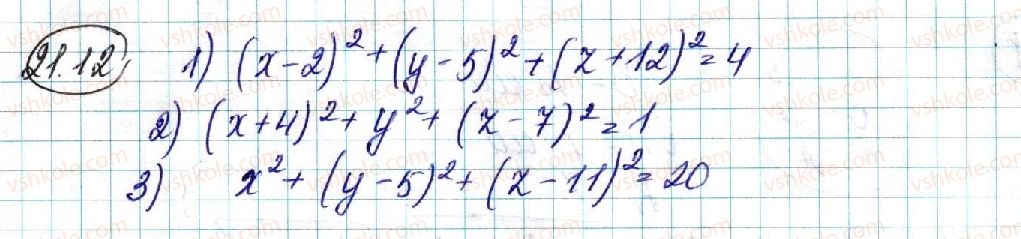 21.12, 1) (x-2)² + (y-5)² + (z+12)² = 4
2) (x+4)² + y² + (z-7)² = 1
3) x² + (y-5)² + (z-11)² = 20